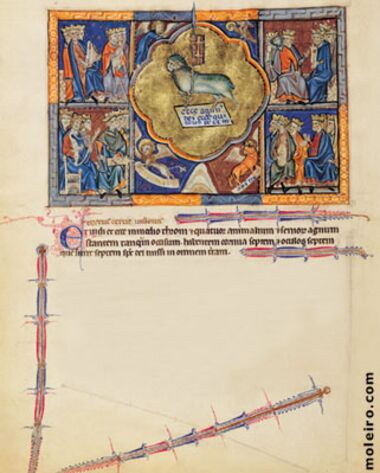 ecce agnus
dei ecce qui
Et uidi et ecce in medio throni et quatuor animalium et senior agnum
stantem tanq̃m occisum. habentem cornua septem et oculos septem
qui sunt septem sp̃c dei missi in omnem terram.
moleiro.com